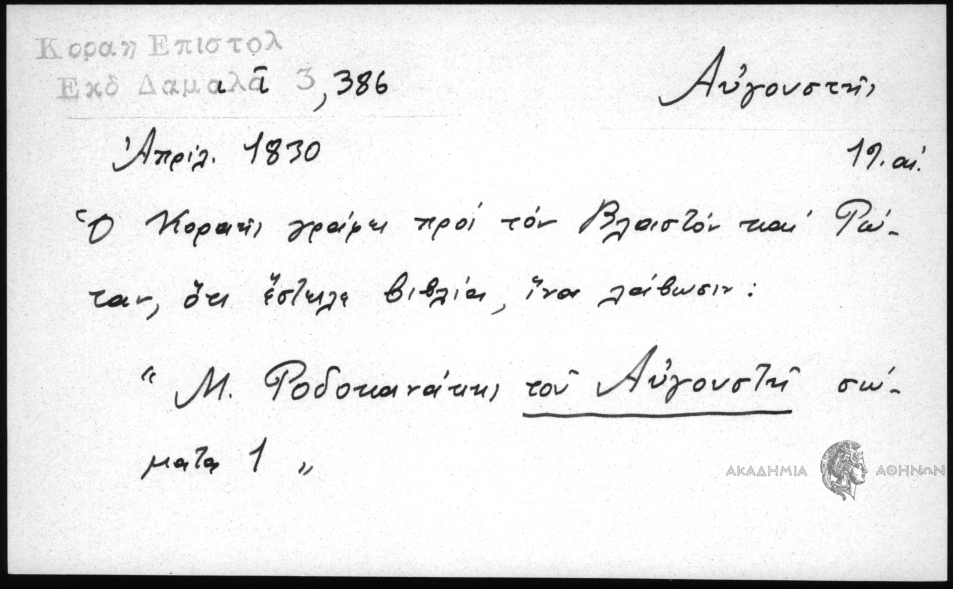 Κοραη Επιστολ
Εκδ Δαμαλᾶ 3, 386
Αὐγουστῆς
Ἀπρίλ. 1830
19. αἰ.
Ὁ Κοραῆς γράφει πρὸς τὸν Βλαστὸν καὶ Ρώ-
ταν, ὅτι ἔστειλε βιβλία, ἵνα λάβωσιν:
“ Μ. Ροδοκανάκης τοῦ Αὐγουστῆ σώ-
ματα 1 ”
ΑΚΑΔΗΜΙΑ ΑΘΗΝΩΝ